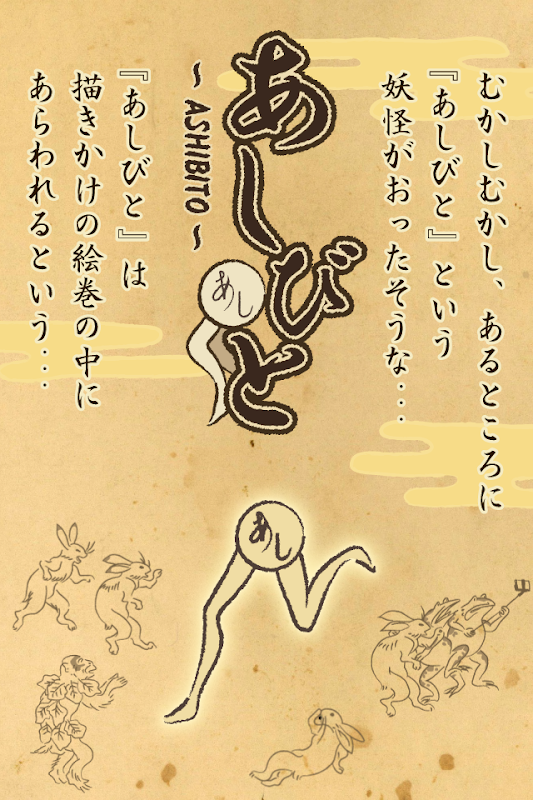 むかしむかし、あるところに
『あしびと』という
妖怪がおったそうな...
あしびと
～ ASHIBITO ～
あし
『あしびと』は
描きかけの絵巻の中に
あらわれるという...
あし